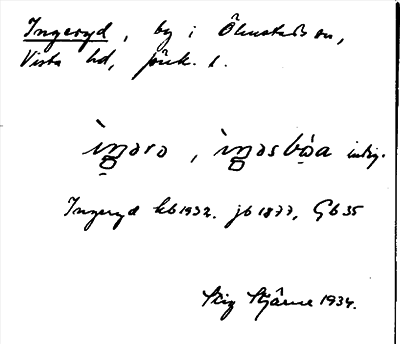 Ingeryd, by i Ölmstads sn,
Vista hd, jönk. l.
Ingeryd kb 1932. jb 1877, Gb 35
Stig Stjärne 1934.